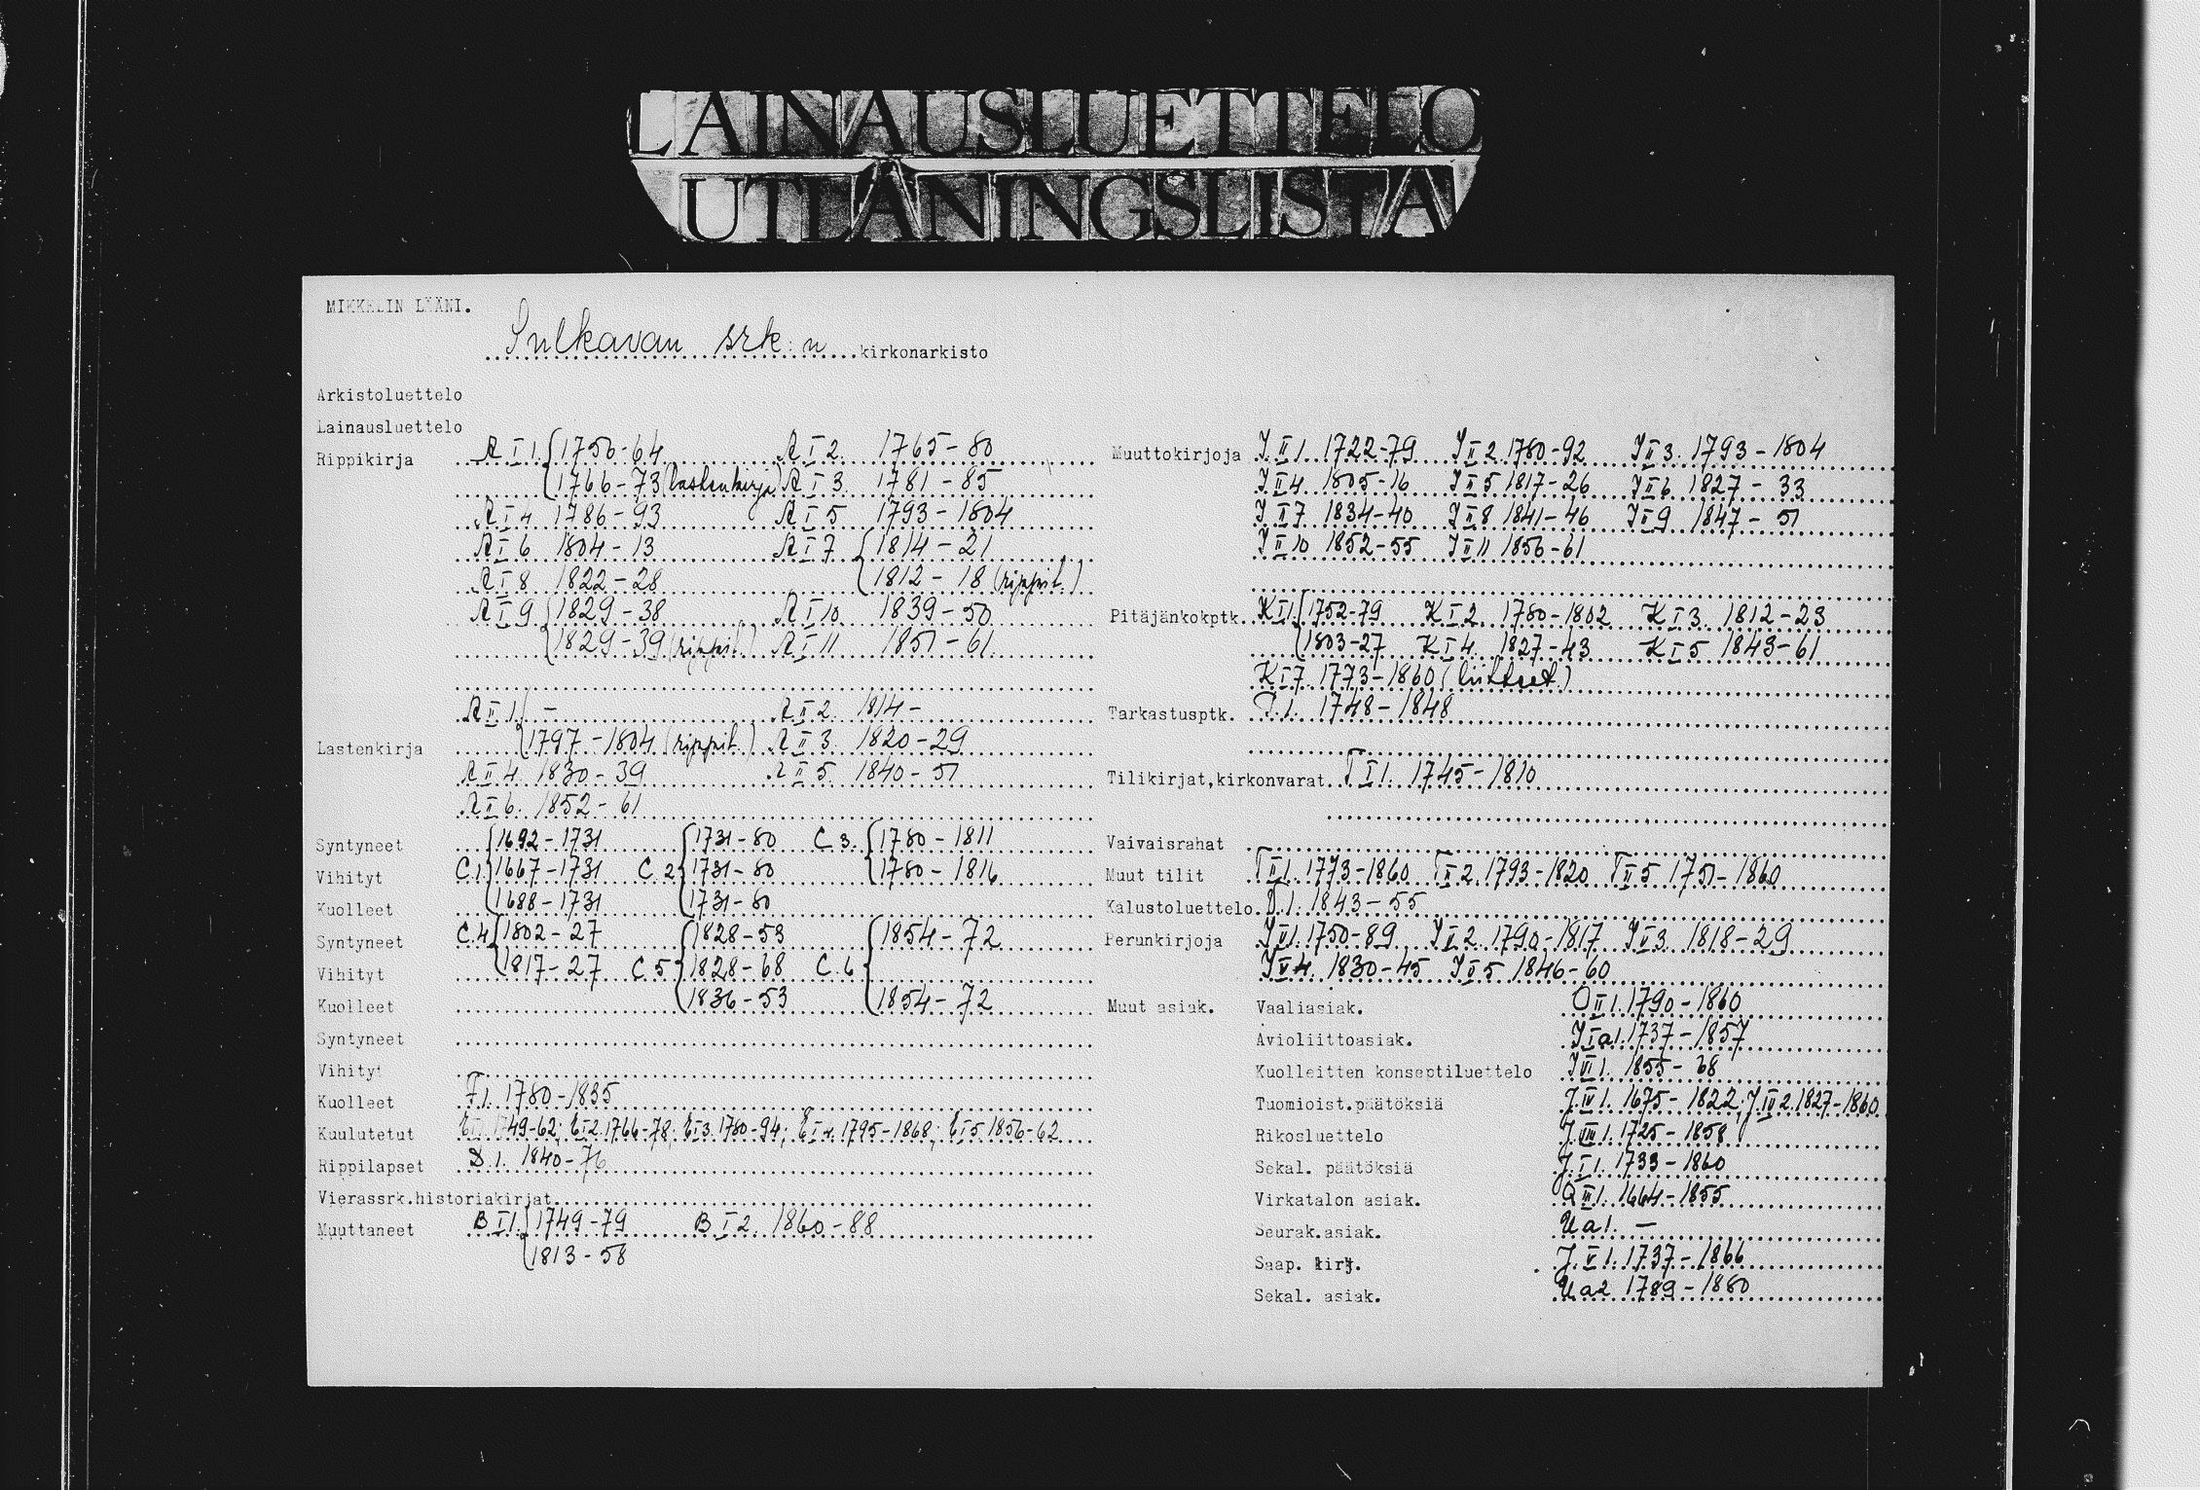 LAINAUSLUETTELO
UTLÅNINGSLISTA
MIKKELIN LÄÄNI.
Sulkavan srk:n kirkonarkisto
Arkistoluettelo
Lainausluettelo
Rippikirja A I 1. { 1756-64 A I 2. 1765-80
1766-73 (lastenkirja) A I 3. 1781-85
A I 4 1786-93 A I 5 1793-1804
A I 6 1804-13 A I 7 { 1814-21
A I 8 1822-28 1812-18 (rippil.)
A I 9 { 1829-38 A I 10 1839-50
1829-39 (rippil.) A I 11 1851-61
A II 1. { - A II 2. 1814-
Lastenkirja 1797-1804 (rippil.) A II 3. 1820-29
A II 4. 1830-39 A II 5. 1840-51
A II 6. 1852-61
Syntyneet { 1692-1731 { 1731-80 C 3. { 1780-1811
Vihityt C.1 1667-1731 C 2 1731-80 1780-1816
Kuolleet 1688-1731 1731-80
Syntyneet C.4 { 1802-27 { 1828-53 { 1854-72
Vihityt 1817-27 C 5 1828-68 C.6
Kuolleet 1836-53 1854-72
Syntyneet
Vihityt
Kuolleet F1. 1780-1835
Kuulutetut E I 1. 1749-62; E I 2 1766-78; E I 3. 1780-94; E I 4. 1795-1868; E I 5 1856-62
Rippilapset D.1. 1840-76
Vierassrk.historiakirjat
Muuttaneet B I 1. { 1749-79 B I 2. 1860-88
1813-58
Muuttokirjoja J II 1. 1722-79 J II 2. 1780-92 J II 3. 1793-1804
J II 4. 1805-16 J II 5 1817-26 J II 6. 1827-33
J II 7 1834-40 J II 8 1841-46 J II 9 1847-51
J II 10 1852-55 J II 11 1856-61
Pitäjänkokptk. K I 1. { 1752-79 K I 2. 1780-1802 K I 3. 1812-23
1803-27 K I 4. 1827-43 K I 5 1843-61
K I 7. 1773-1860 (liitteet.)
Tarkastusptk. P.1. 1748-1848
Tilikirjat,kirkonvarat T I 1. 1745-1810
Vaivaisrahat
Muut tilit T II 1. 1773-1860 T II 2. 1793-1820 T II 5 1751-1860
Kalustoluettelo. 1. 1843-55
Perunkirjoja J V 1. 1750-89 J V 2. 1790-1817 J V 3. 1818-29
J V 4. 1830-45 J V 5 1846-60
Muut asiak. Vaaliasiak. O II 1. 1790-1860
Avioliittoasiak. J I a 1. 1737-1857
Kuolleitten konseptiluettelo J VI 1. 1855-68
Tuomioist.päätöksiä J. IV 1. 1675-1822, J. IV 2. 1827-1860
Rikosluettelo J. III 1. 1725-1858
Sekal. päätöksiä J. I 1. 1733-1860
Virkatalon asiak. Q III 1. 1664-1855
Seurak.asiak. U a 1. -
Saap. kirj. J. V 1. 1737-1866
Sekal. asiak. U a 2 1789-1880